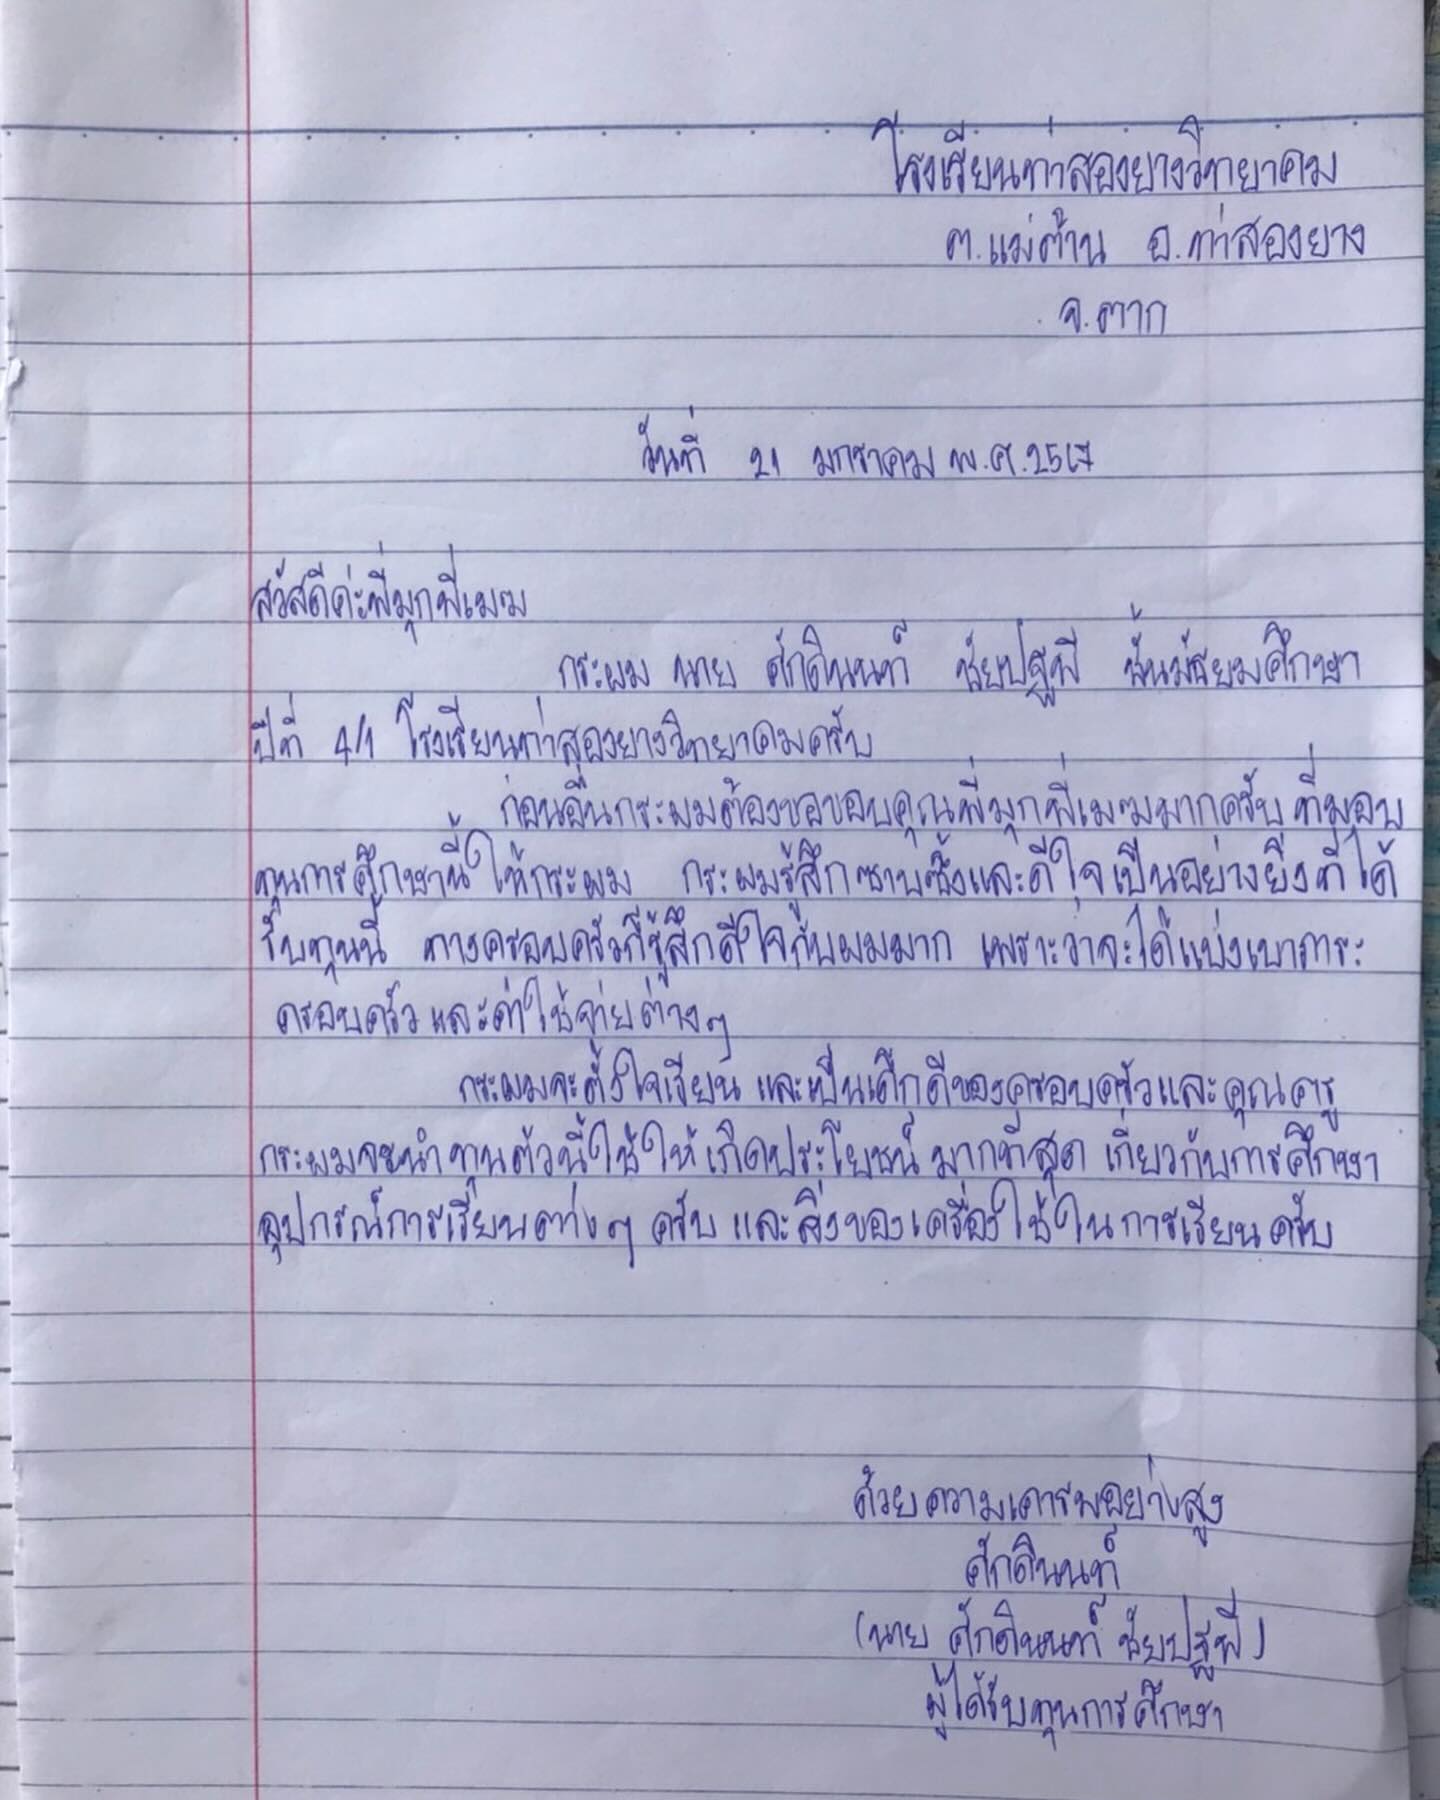 โรงเรียนท่าสองยางวิทยาคม
ต.แม่ต้าน อ.ท่าสองยาง
จ.ตาก
วันที่ 21 มกราคม พ.ศ.2567
สวัสดีค่ะพี่มุกพี่เมฆ
กระผม นาย ศักดินนท์ ชัยปฐพี ชั้นมัธยมศึกษา
ปีที่ 4/1 โรงเรียนท่าสองยางวิทยาคมครับ
ก่อนอื่นกระผมต้องขอขอบคุณพี่มุกพี่เมฆมากครับ ที่มอบ
ทุนการศึกษานี้ให้กระผม กระผมรู้สึกซาบซึ้งและดีใจเป็นอย่างยิ่งที่ได้
รับทุนนี้ ทางครอบครัวก็รู้สึกดีใจกับผมมาก เพราะว่าจะได้แบ่งเบาภาระ
ครอบครัว และค่าใช้จ่ายต่างๆ
กระผมจะตั้งใจเรียน และเป็นเด็กดีของครอบครัวและคุณครู
กระผมจะนำทุนตัวนี้ใช้ให้เกิดประโยชน์มากที่สุด เกี่ยวกับการศึกษา
อุปกรณ์การเรียนต่างๆ ครับ และสิ่งของเครื่องใช้ในการเรียนครับ
ด้วยความเคารพอย่างสูง
ศักดินนท์
(นาย ศักดินนท์ ชัยปฐพี)
ผู้ได้รับทุนการศึกษา